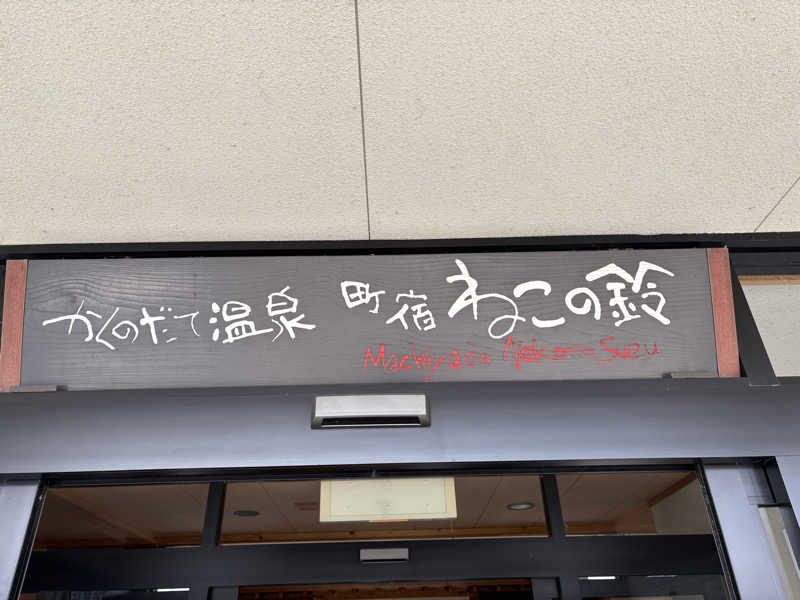 かくのだて温泉 町宿 ねこの鈴
Machiyado Nekono Suzu